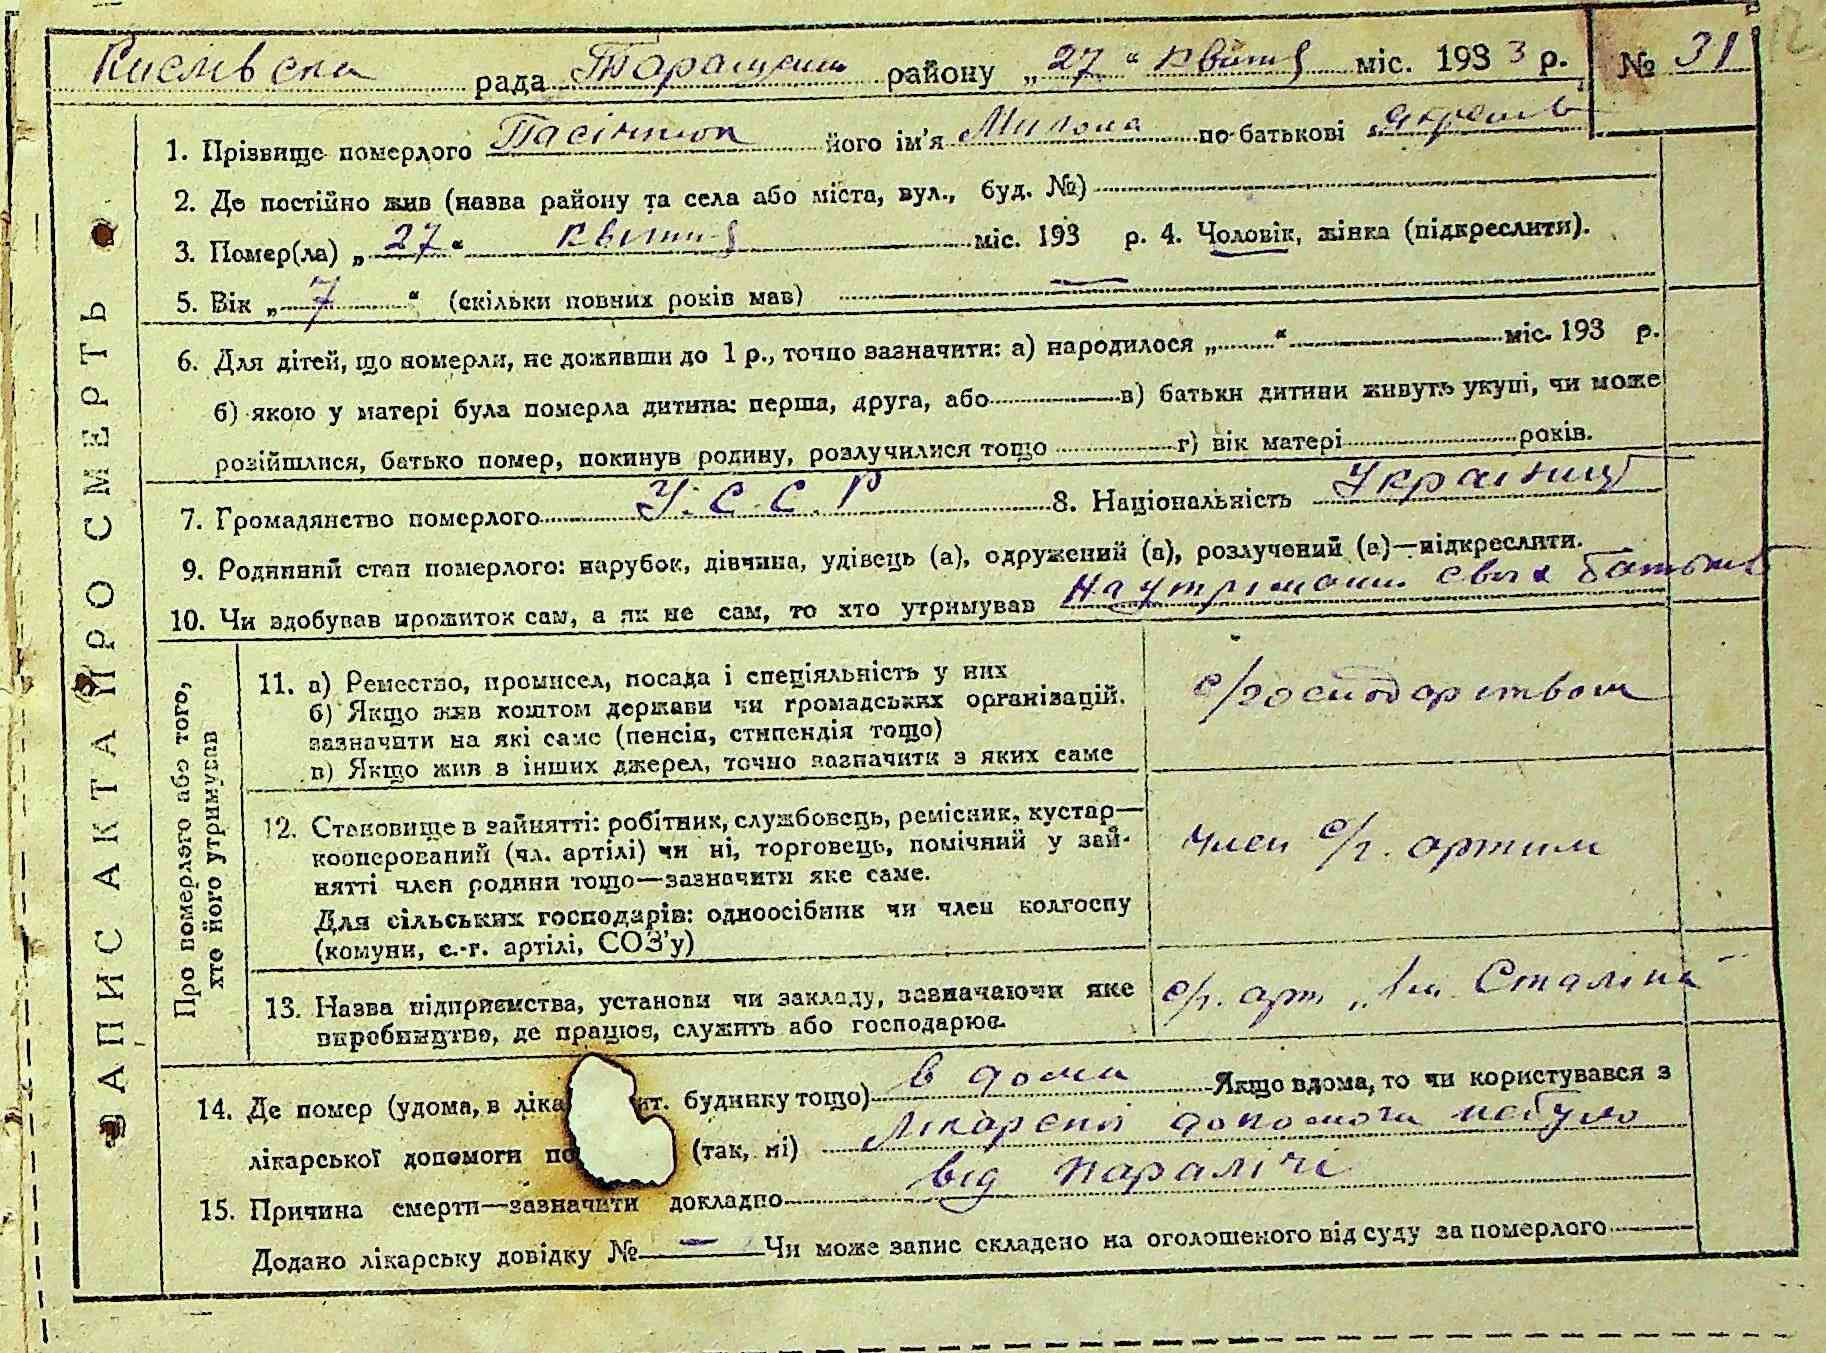 рада Таращан району „27“ квітня міс. 1933 р. № 31
1. Прізвище померлого Пасічнюк його ім'я Милона по батькові
2. Де постійно жив (назва району та села або міста, вул., буд. №)
3. Помер(ла) „27“ квітня міс. 193 р. 4. Чоловік, жінка (підкреслити).
5. Вік „7“ (скільки повних років мав) —
6. Для дітей, що померли, не доживши до 1 р., точно зазначити: а) народилося „ “ міс. 193 р.
б) якою у матері була померла дитина: перша, друга, або в) батьки дитини живуть укупі, чи може
розійшлися, батько помер, покинув родину, розлучилися тощо г) вік матері років.
7. Громадянство померлого У.С.С.Р 8. Національність Українці
9. Родинний стан померлого: парубок, дівчина, удівець (а), одружений (а), розлучений (а)—підкреслити.
10. Чи здобував прожиток сам, а як не сам, то хто утримував На утрімані свої батьків
ЗАПИС АКТА ПРО СМЕРТЬ
Про померлого або того,
хто його утримував
11. а) Ремество, промисел, посада і спеціяльність у них
б) Якщо жив коштом держави чи громадських організацій,
зазначити на які саме (пенсія, стипендія тощо)
в) Якщо жив з інших джерел, точно зазначити з яких саме
с/господарством
12. Становище в зайнятті: робітник, службовець, ремісник, кустар—
кооперований (чл. артілі) чи ні, торговець, помічний у зай-
нятті член родини тощо—зазначити яке саме.
Для сільських господарів: одноосібник чи член колгоспу
(комуни, с.-г. артілі, СОЗ'у)
член с/г. артили
13. Назва підприємства, установи чи закладу, зазначаючи яке
виробництво, де працює, служить або господарює.
с/г. арт „Ім. Сталіна“
14. Де помер (удома, в ліка ит. будинку тощо) в дома Якщо вдома, то чи користувався з
лікарської допомоги по (так, ні) Лікарскої допомоги небуло
15. Причина смерти—зазначити докладно від паралічі
Додано лікарську довідку № — Чи може запис складено на оголошеного від суду за померлого